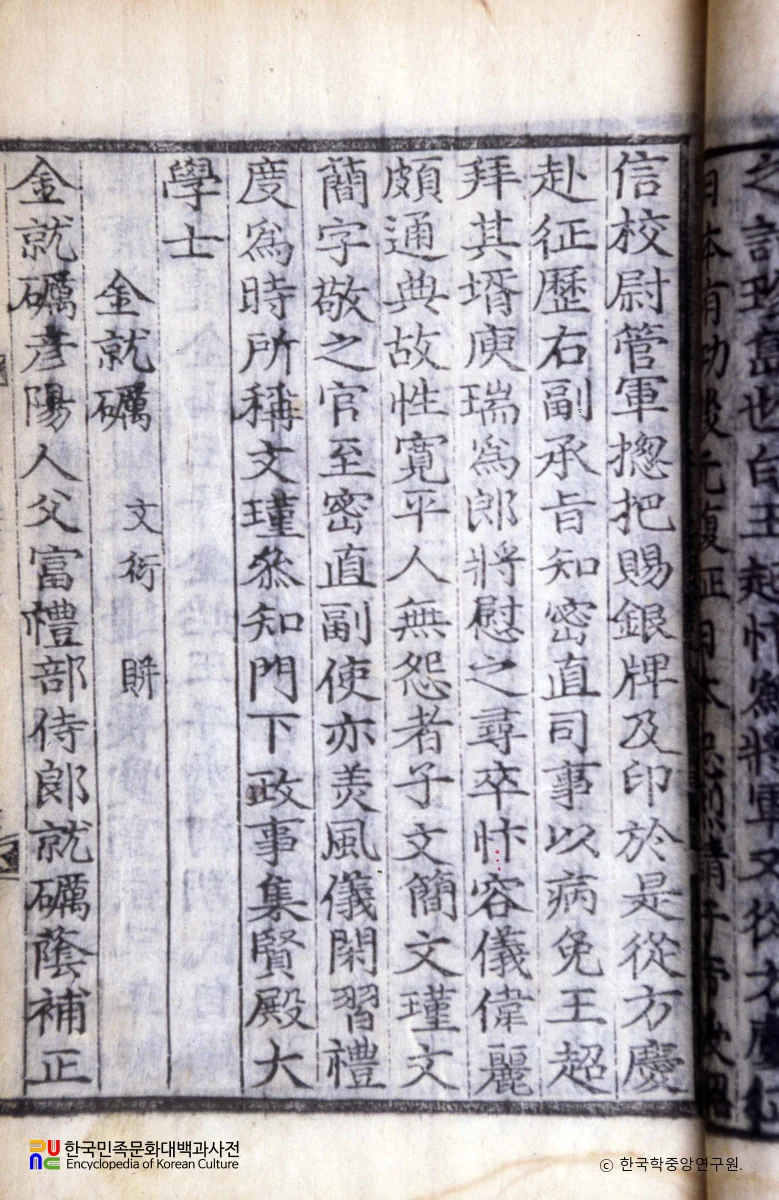 之討珍島也白王起忭爲將軍又從方慶征
日本有功後元復征日本忠烈請于帝
信校尉管軍揔把賜銀牌及印於是從方慶
赴征歷右副承旨知密直司事以病免王超
拜其壻庾瑞爲郎將慰之尋卒忭容儀偉麗
頗通典故性寬平人無怨者子文簡文瑾文
簡字敬之官至密直副使亦美風儀閑習禮
度爲時所稱文瑾叅知門下政事集賢殿大
學士
金就礪 文衍 賆
金就礪彦陽人父富禮部侍郎就礪蔭補正
한국민족문화대백과사전
Encyclopedia of Korean Culture
ⓒ 한국학중앙연구원.